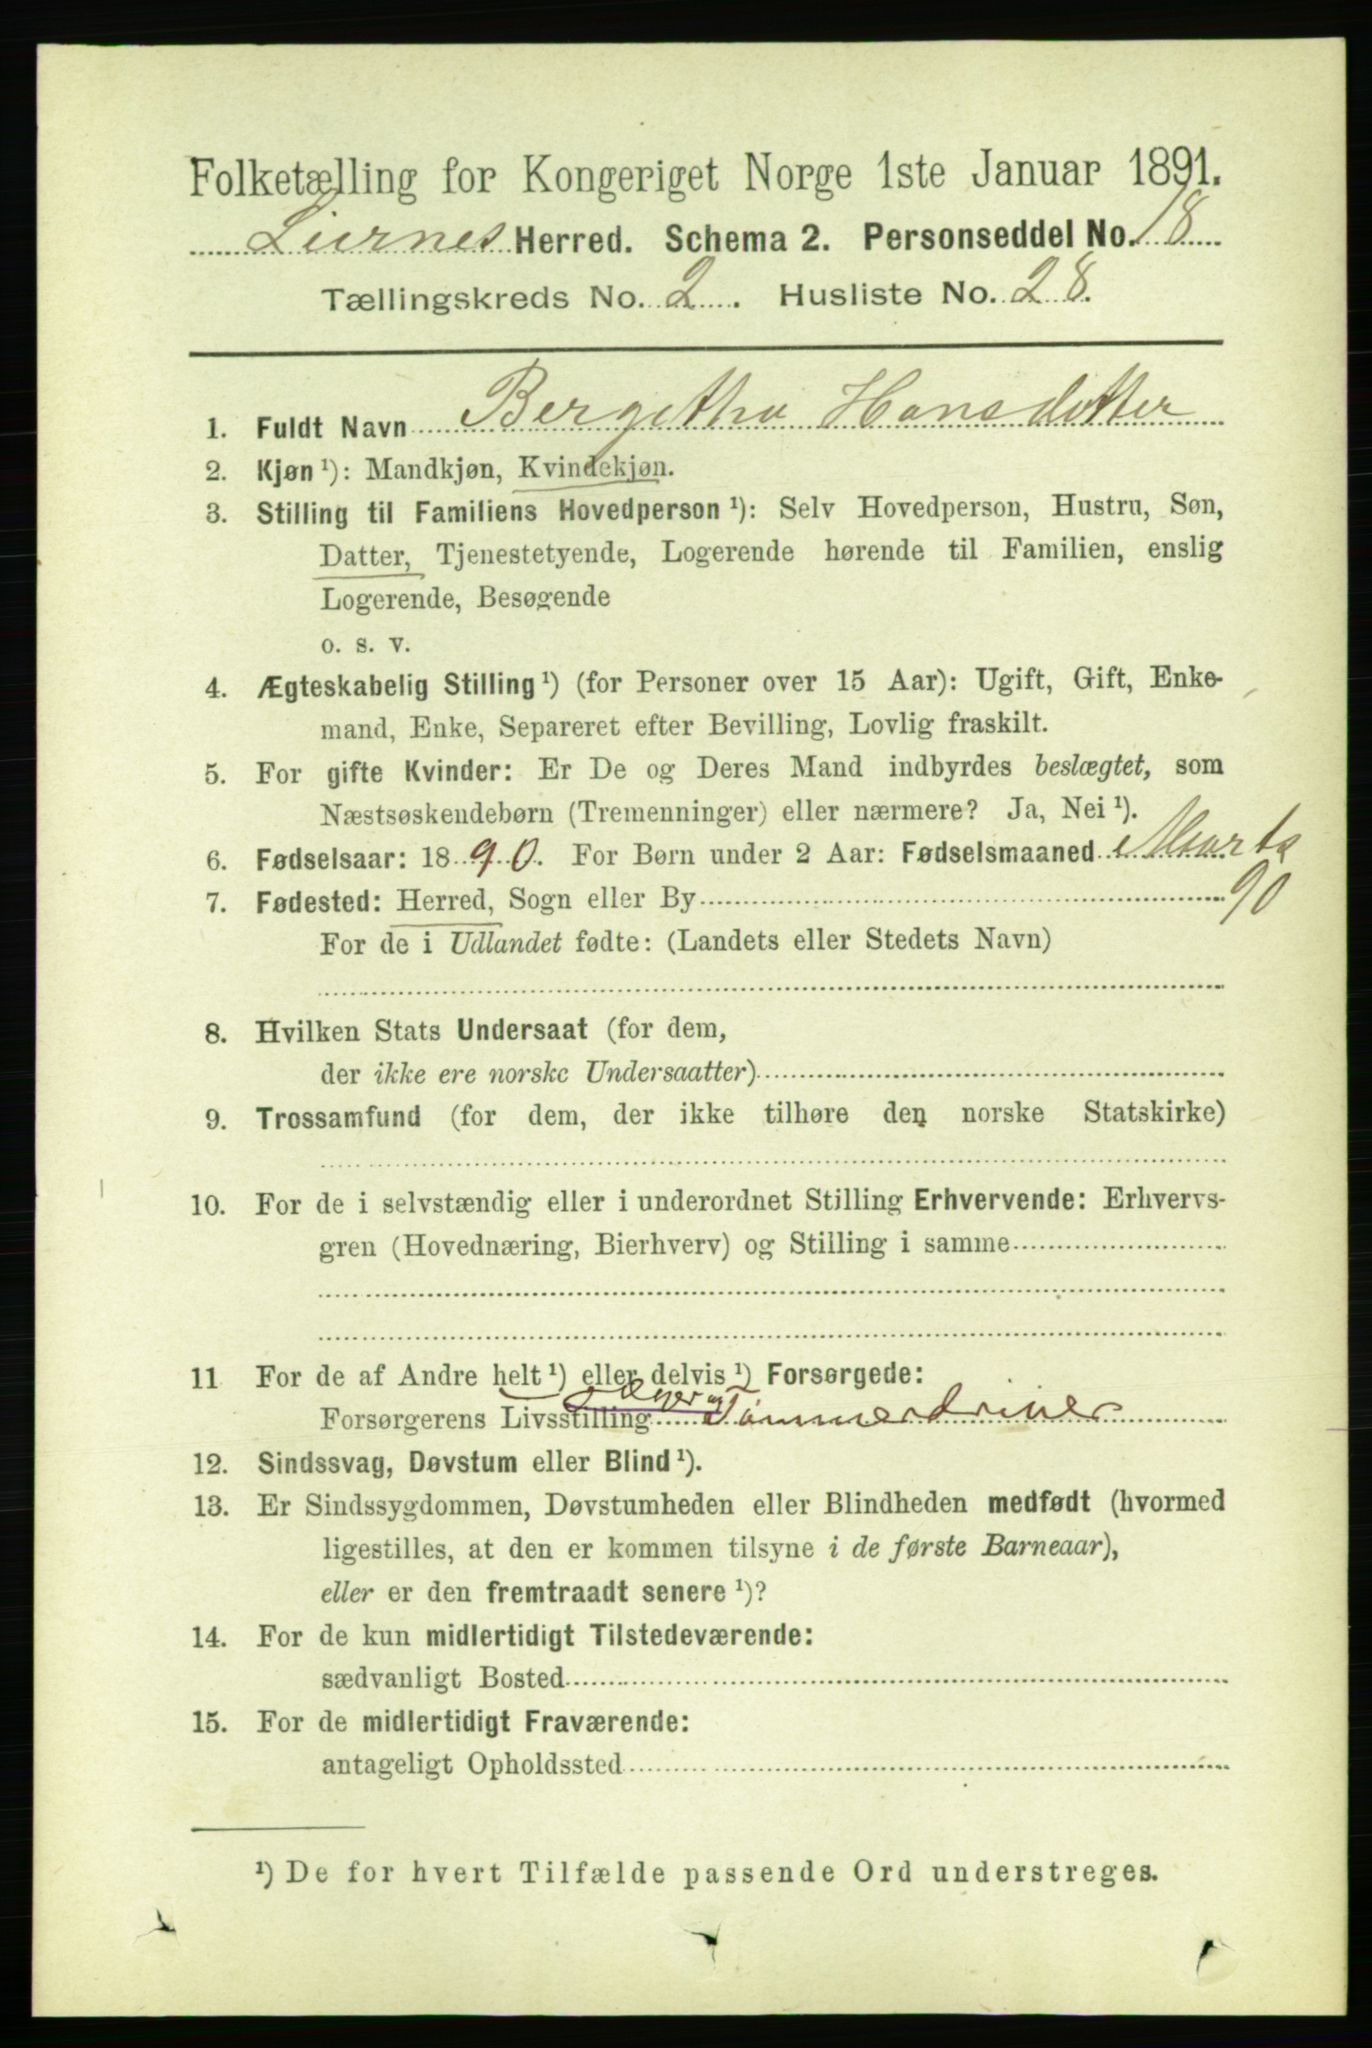 Folketælling for Kongeriget Norge 1ste Januar 1891.
Herred. Schema 2. Personseddel No. 18
Tællingskreds No. 2. Husliste No. 28.
1. Fuldt Navn Bergitha Hansdatter
2. Kjøn ¹): Mandkjøn, Kvindekjøn.
3. Stilling til Familiens Hovedperson ¹): Selv Hovedperson, Hustru, Søn,
Datter, Tjenestetyende, Logerende hørende til Familien, enslig
Logerende, Besøgende
o. s. v.
4. Ægteskabelig Stilling ¹) (for Personer over 15 Aar): Ugift, Gift, Enke-
mand, Enke, Separeret efter Bevilling, Lovlig fraskilt.
5. For gifte Kvinder: Er De og Deres Mand indbyrdes beslægtet, som
Næstsøskendebørn (Tremenninger) eller nærmere? Ja, Nei ¹).
6. Fødselsaar: 1890. For Børn under 2 Aar: Fødselsmaaned Marts
90
7. Fødested: Herred, Sogn eller By
For de i Udlandet fødte: (Landets eller Stedets Navn)
8. Hvilken Stats Undersaat (for dem,
der ikke ere norske Undersaatter)
9. Trossamfund (for dem, der ikke tilhøre den norske Statskirke)
10. For de i selvstændig eller i underordnet Stilling Erhvervende: Erhvervs-
gren (Hovednæring, Bierhverv) og Stilling i samme
11 For de af Andre helt ¹) eller delvis ¹) Forsørgede:
Forsørgerens Livsstilling og Tømmerdriver
12. Sindssvag, Døvstum eller Blind ¹).
13. Er Sindssygdommen, Døvstumheden eller Blindheden medfødt (hvormed
ligestilles, at den er kommen tilsyne i de første Barneaar),
eller er den fremtraadt senere ¹)?
14. For de kun midlertidigt Tilstedeværende:
sædvanligt Bosted
15. For de midlertidigt Fraværende:
antageligt Opholdssted
¹) De for hvert Tilfælde passende Ord understreges.